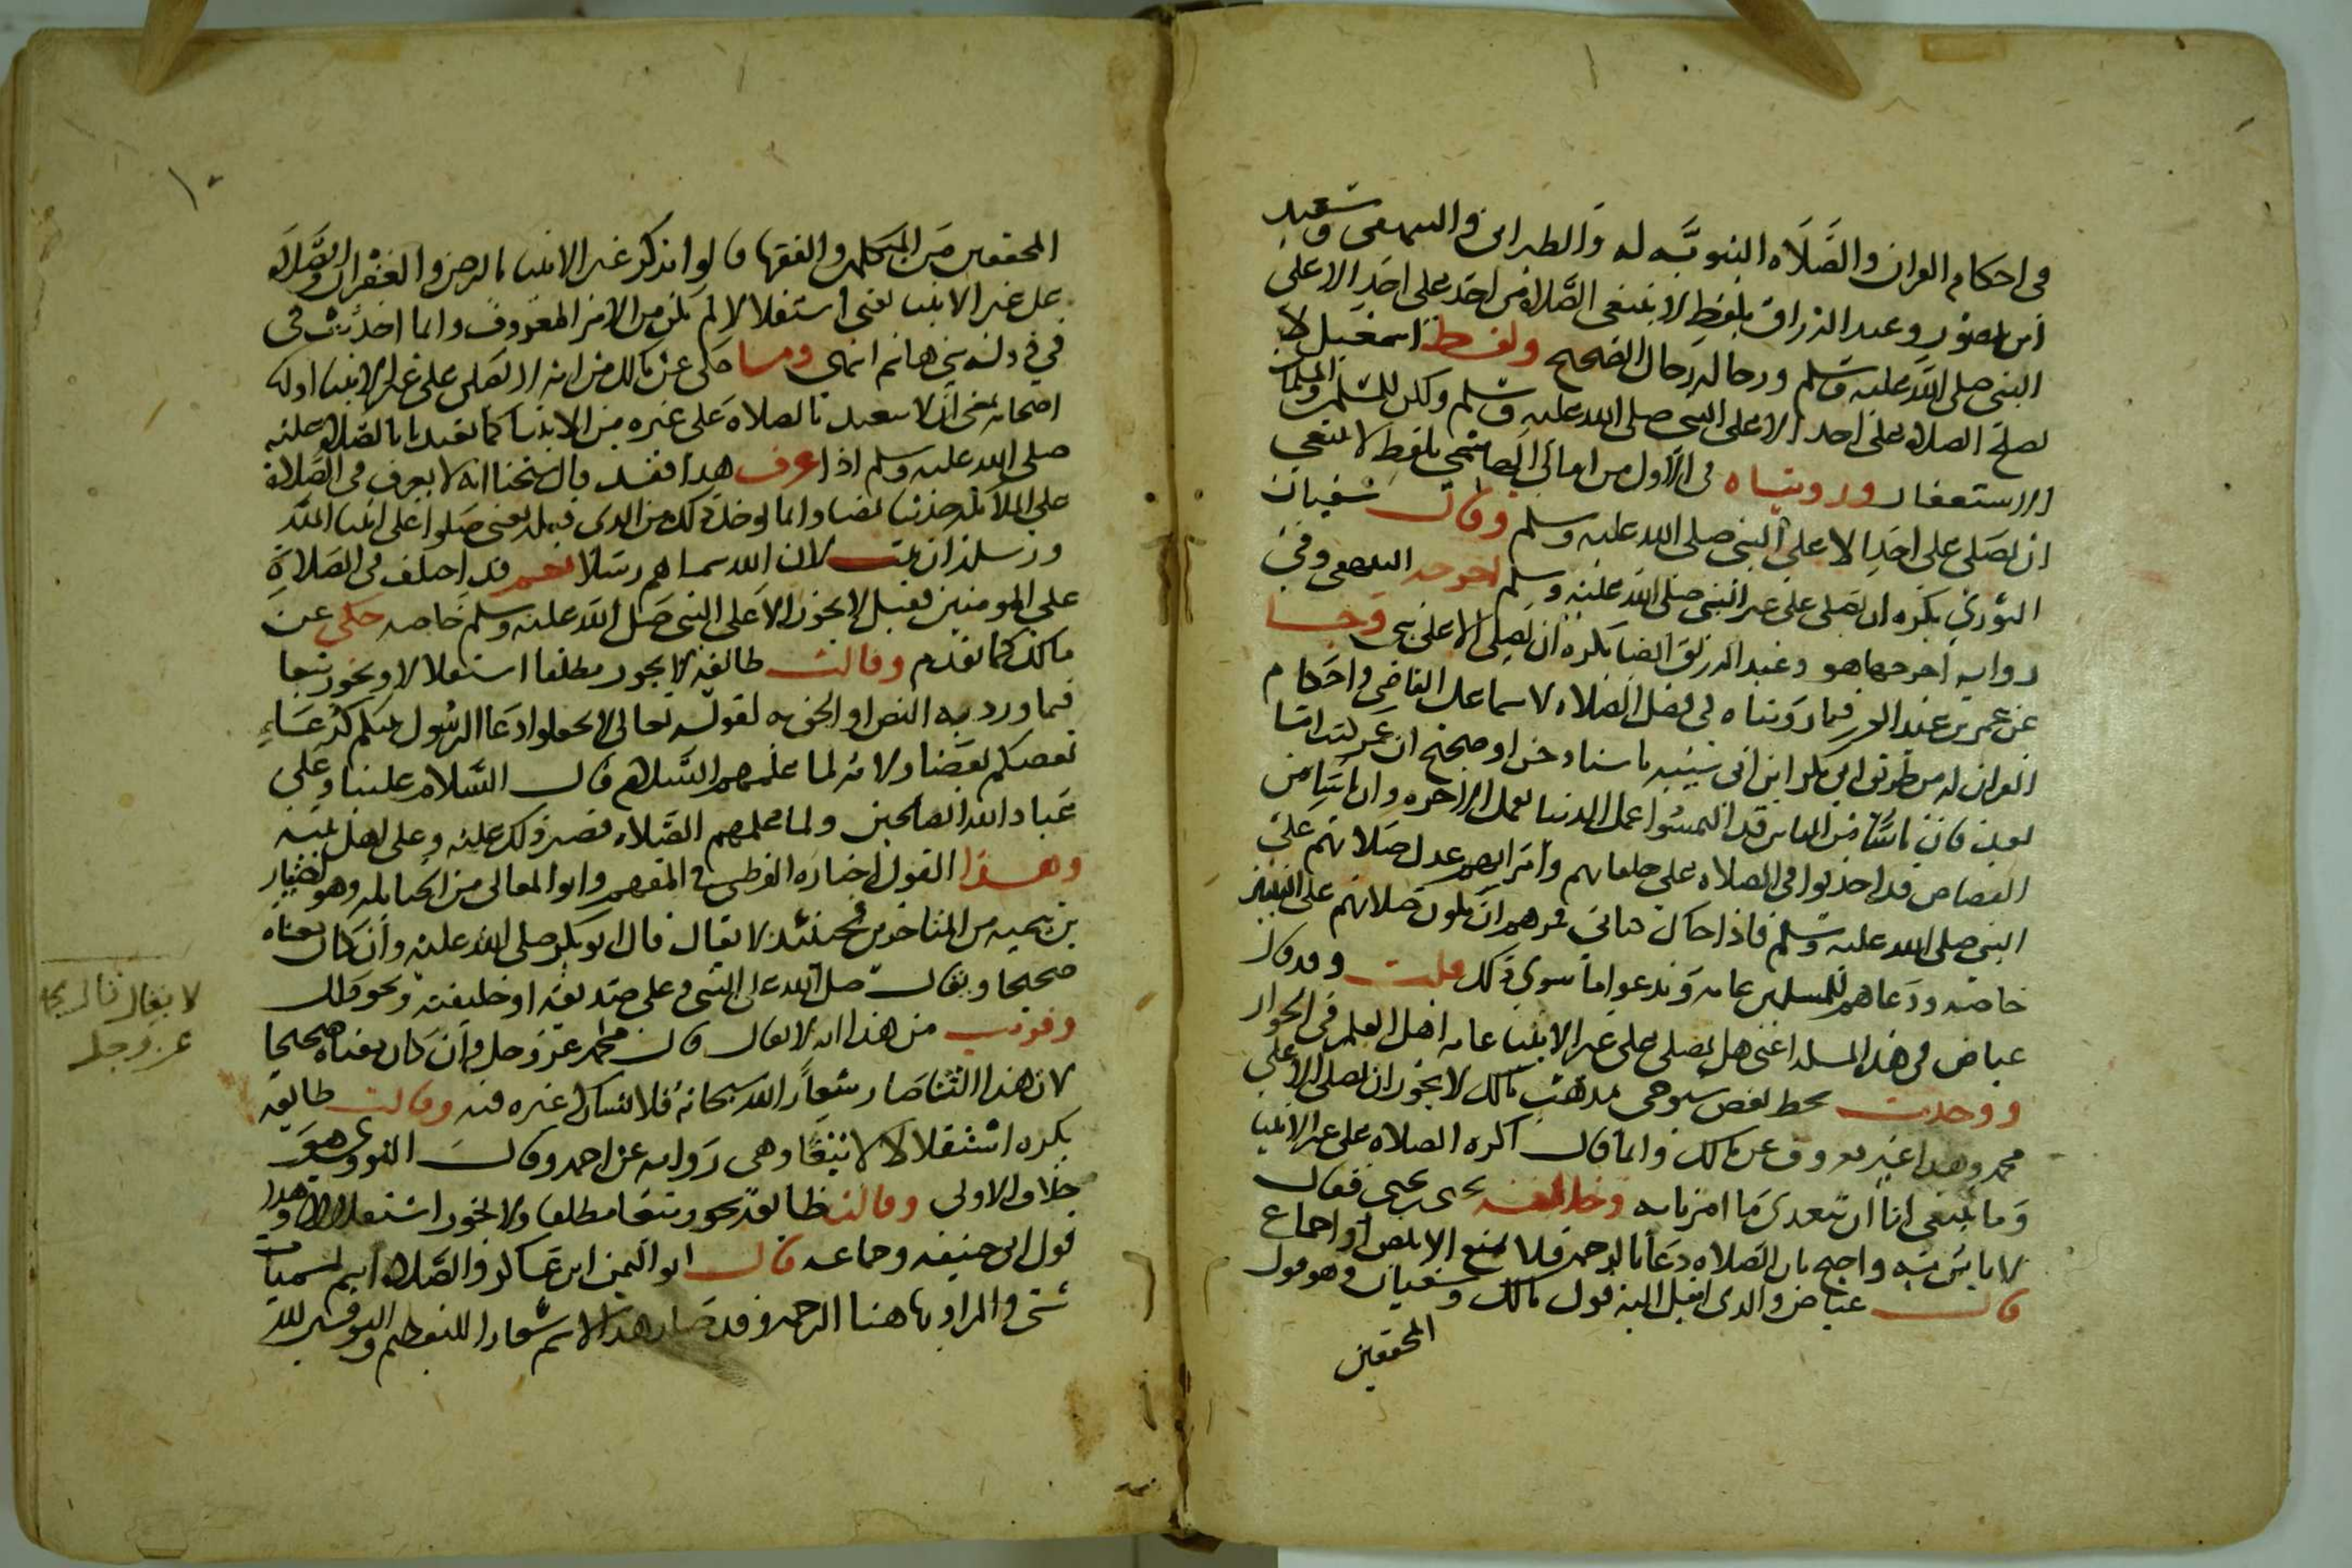 في احكام القران والصَّلَاه النبويَّه له والطبراني والبيهقي وسعيد
ابن منصور وعبد الرزاق بلفظ لا ينبغي الصَّلاة من احَد على احَدٍ الا على
النبي صلى الله عليه وسلم ورجاله رجال الصحيح ولفظ اسمعيل لا
تصلح الصلاة على احد الا على النبي صلى الله عليه وسلم ولكن للمسلمين والمسلمات
الاستغفار ورويناه في الاول من امالي الهاشمي بلفظ لا ينبغي
ان يصَلى على احَدٍ الا على النبي صلى الله عليه وسلم وقال سفيان
الثوري يكره ان يصَلى على غير النبي صلى الله عليه وسلم اخرجه البيهقي وفي
رواية اخرجها هو وعبد الرزاق ايضا يكره ان يصلى الا على نبي وجا
عن عمر بن عبد العزيز فيما رويناه في فضل الصَّلاه لاسماعيل القاضي واحكام
القران له من طريق ابي بكر ابن ابي شيبه باسناد حسن او صحيح ان عمر كتب اما
بعد فان ناسًا من الناس قد التمسُوا عمل الدنيا بعمل الاخره وان ناسًا من
القصاص قد احدثوا في الصلاه على خلفايهم وامرايهم عدل صَلاتهم على
النبي صلى الله عليه وسلم فاذا جاك كتابي فمرهم ان تكون صَلاتهم على النبيين
خاصَّه ودعاهم للمسلمين عامه وَيدعوا ما سوي ذلك قلت وقد قال
عياض في هذه المسله اعني هل يصلى على غير الانبيا عامه اهل العلم في الجواز
ووجدت بخط بعض شيوخي مذهب مالك لا يجوز ان يصلى الا على
محمد وهذا غير معروف عن مالك وانما قال اكره الصلاه على غير الانبيا
وَما ينبغي لنا ان نتعدى مَا امرنا به وخالفه يحيى بن يحيى فقال
لا باس به واحتج بان الصَّلاه دعَا بالرحمه فلا تمنع الا بنص او اجماع
قال عياض والذي اميل اليه قول مالك وسفيان وهو قول
المحققين
المحققين من المتكلمين والفقها قالوا يذكر غير الانبيا بالرضى والغفران والصَّلاة
على غير الانبيا يعني استقلالا لم تكن من الامر المعروف وانما احدثت في
في دولة بني هاشم انتهى وما حكى عن مالك من انه لا يصلى على غير الانبيا اوله
اصحابه بمعنى انا لا نتعبد بالصلاة على غيره من الانبيا كما تعبدنا بالصَّلاة عليه
صلى الله عليه وسلم اذا عرف هذا فقد قال شيخنا انه لا يعرف في الصَّلاة
على الملائكه حديثا نصا وانما يوخذ ذلك من الذي قبله يعني صَلوا على انبيا الله
ورسله ان ثبت لان الله سماهم رسلا نعم قد اختلف في الصَّلاةِ
على المومنين فقيل لا يجوز الا على النبي صلى الله عليه وسلم خاصه حكى عن
مالك كما تقدم وقالت طائفة لا يجوز مطلقا استقلالا ويجوز تبعا
فيما ورد به النص او الحق به لقوله تعالى لا تجعلوا دعَا الرسُول بينكم كدعَاءِ
بعضكم بعضا ولانه لما علمهم السَّلام قال السَّلام علينا وعَلى
عباد الله الصالحين ولما علمهم الصَّلاه قصر ذلك عليه وعلى اهل بيته
وهذا القول اختاره القرطبي في المفهم وابو المعالي من الحنابله وهو اختيار
بن تيميه من المتاخرين فحينئذ لا يقال قال ابو بكر صلى الله عليه وان كان معناه
صحيحا ويقال صلى الله على النبي وعلى صديقه او خليفته ونحو ذلك
وقريب من هذا انه لا يقال قال محمد عز وجل وان كان معناه صحيحا
لان هذا الثنا صَار شعارًا لله سبحانه فلا يشاركه غيره فيه وقالت طايفه
يكره استقلالا لا تبعًا وهي رَوايه عن احمد وقالَ النووي هوَ
خلاف الاولى وقالت طايفه يجوز تبعَا مطلقا ولا يجوز استقلالا وهذا
قول ابي حنيفه وجماعه قال ابو اليمن ابن عساكر والصَّلاه اسم لمسميات
شتى والمراد بها هنا الرحمه وقد صَار هذا الاسم شعارا للتعظيم والتوقير لله
لا يقال قال محمد
عز وجل